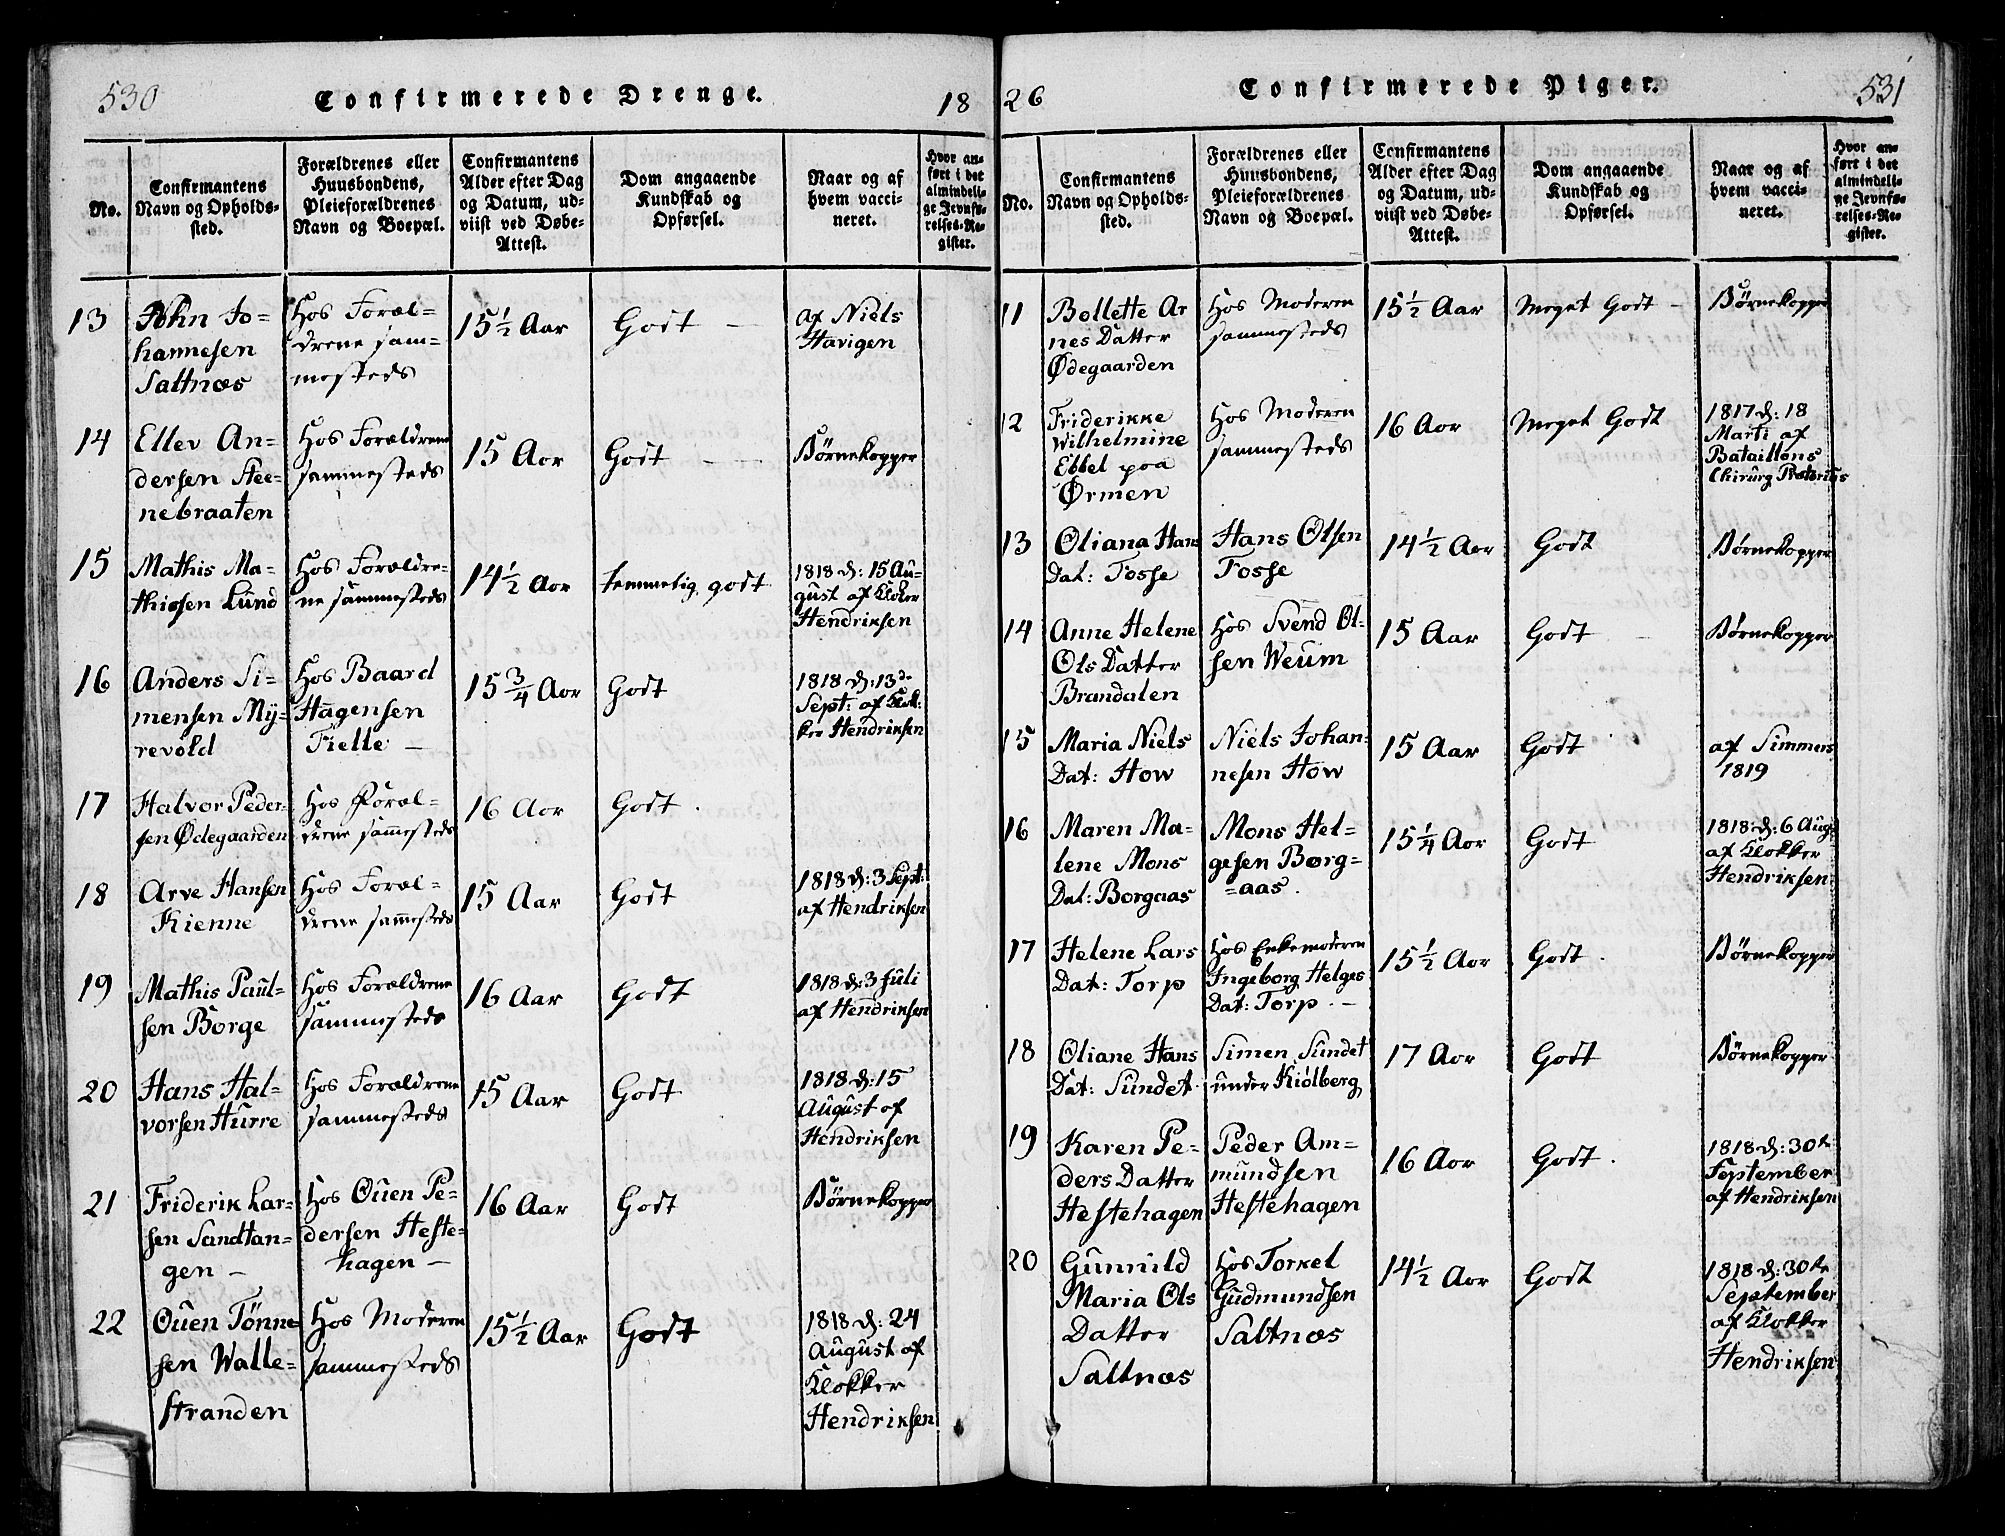 530
Confirmerede Drenge.
18
No.
Confirmantens
Navn og Opholds-
sted.
Forældrenes eller
Huusbondens,
Pleieforældrenes
Navn og Boepæl.
Confirmantens
Alder efter Dag
og Datum, ud-
viist ved Døbe-
Attest.
Dom angaaende
Kundskab og
Opførsel.
Naar og af
hvem vacci-
neret.
Hvor an-
ført i det
almindeli-
ge Jevnfø-
relses-Re-
gister.
13
John Jo-
hannesen
Saltnæs
Hos Foræl-
drene sam-
mesteds
15 1/2 Aar
Godt —
af Niels
Havigen
14
Ellev An-
dersen Stee-
nebraaten
Hos Forældrene
sammesteds
15 Aar
Godt —
Børnekopper
15
Mathis Ma-
thisen Lund
Hos Forældre-
ne sammesteds
14 1/2 Aar
temmelig godt
1818 d: 15 Au-
gust af Kloker
Hendriksen
16
Anders Si-
mensen My-
revold
Hos Baard
Hagensen
Tielle —
15 3/4 Aar
Godt
1818 d: 13de
Sept: af Klok-
ker Hendriksen
17
Halvor Peder-
sen Ødegaarden
Hos Foræl-
drene sam̄esteds
16 Aar
Godt .
18
Arve Hansen
Kienne
Hos Foræl-
drene sam̄esteds
15 Aar
Godt
1818 d: 3 Sept:
af Hendriksen
19
Mathis Paul-
sen Borge
Hos Forældrene
sammesteds
16 Aar
Godt
1818 d: 3 Juli
af Hendriksen
20
Hans Hal-
vorsen Hurre
Hos Forældrene
sammesteds
15 Aar
Godt
1818 d: 15
August af
Hendriksen
21
Friderik Lar-
sen Sandtan-
gen —
Hos Ouen Pe-
dersen Heste-
hagen —
16 Aar
Godt
Børnekopper
22
Ouen Tønne-
sen Walle-
stranden
Hos Moderen
sammesteds
15 1/2 Aar
Godt
1818 d: 24
August af
Klokker
Hendriksen
26
Confirmerede Piger.
531
No.
Confirmantens
Navn og Opholds-
sted.
Forældrenes eller
Huusbondens,
Pleieforældrenes
Navn og Boepæl.
Confirmantens
Alder efter Dag
og Datum, ud-
viist ved Døbe-
Attest.
Dom angaaende
Kundskab og
Opførsel.
Naar og af
hvem vacci-
neret.
Hvor an-
ført i det
almindeli-
ge Jevnfø-
relses-Re-
gister.
11
Bollette Ar
nes Datter
Ødegaarden
Hos Moderen
sammesteds
15 1/2 Aar
Meget Godt —
Børnekopper
12
Friderikke
Wilhelmine
Ebbel paa
Ørmen
Hos Moderen
sammesteds
16 Aar
Meget Godt
1817 d: 18
Marti af
Bataillons
Chirurg Prætorius
13
Oliana Hans
Dat: Fosse
Hans Olsen
Fosse
14 1/2 Aar
Godt
Børnekopper
14
Anne Helene
Ols Datter
Brandalen
Hos Svend Ol-
sen Weum
15 Aar
Godt —
Børnekopper
15
Maria Niels
Dat: How
Niels Johan-
nesen How
15 Aar
Godt
af Simmers
1819
16
Maren Ma-
lene Mons
Dat: Borgaas
Mons Hel-
gesen Borg-
=aas.
15 1/4 Aar
Godt
1818 d: 6 Aug:
af Klokker
Hendriksen
17
Helene Lars
Dat: Torp
Hos Enkemoderen
Ingeborg Helges
Dat: Torp. —
15 1/2 Aar
Godt .
Børnekopper
18
Oliane Hans
Dat: Sundet
Simen Sundet
under Kiølberg
17 Aar
Godt
Børnekopper
19
Karen Pe-
ders Datter
Hestehagen
Peder Am-
mundsen
Hestehagen
16 Aar
Godt .
1818 d: 30te
September
af Hendriksen
20
Gunnild
Maria Ols
Datter
Saltnæs
Hos Torkel
Gudmundsen
Saltnæs
14 1/2 Aar
Godt
1818 d: 30te
September
af Klokker
Hendriksen